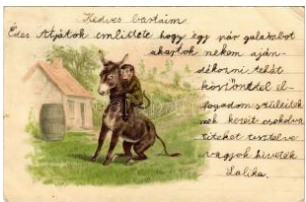 Kedves bartáim
Édes Atyátok emlitéte hogy egy pár galambot
akartok nekem aján-
dékozni tehát
köszönettel el-
fogadom szüleitek-
nek kezeit csokolva
titeket tisztelve
vagyok hivetek
Lalika.